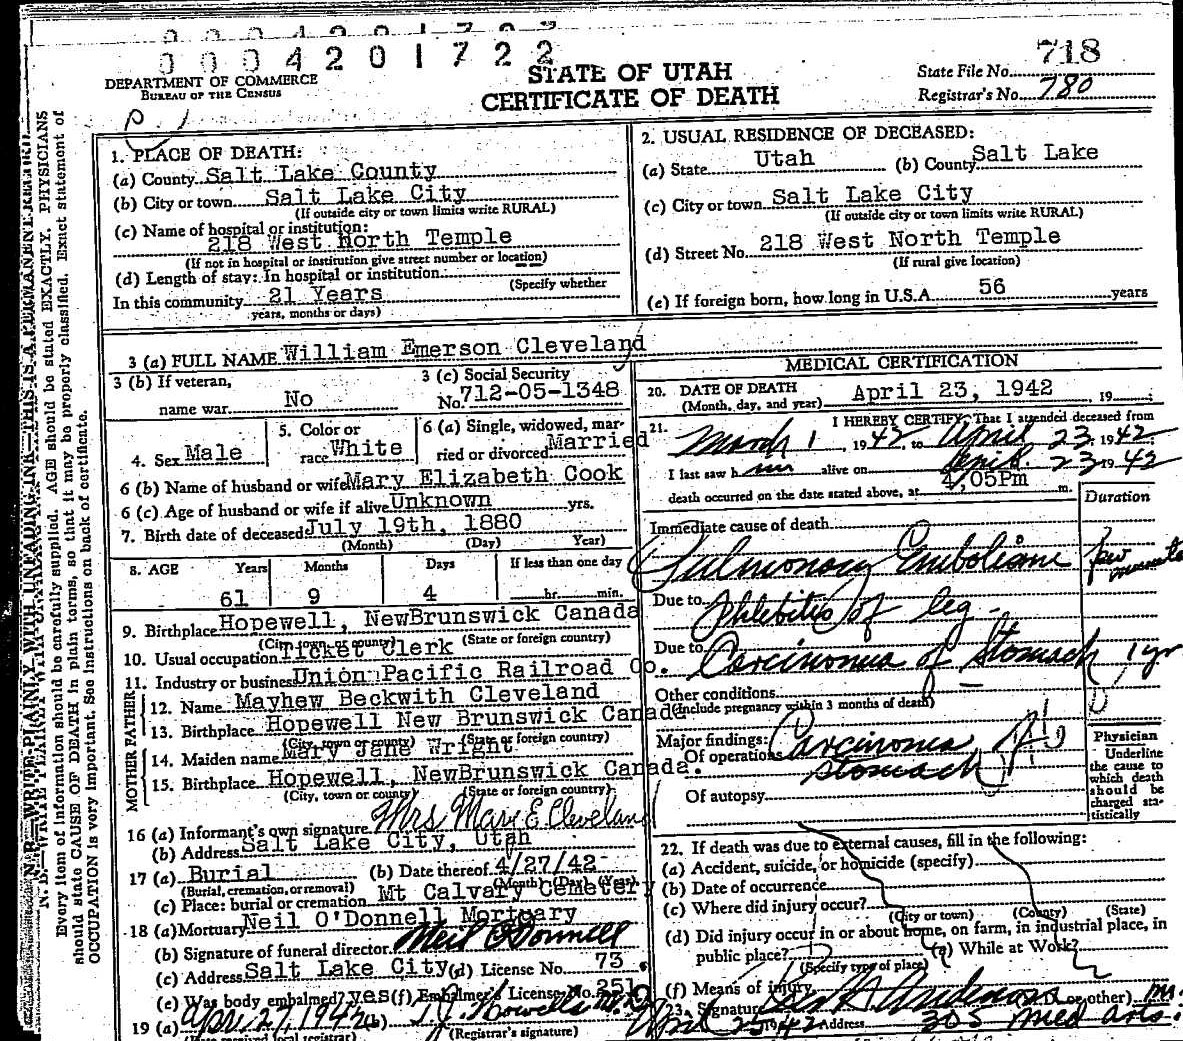 0004201722
718
DEPARTMENT OF COMMERCE
BUREAU OF THE CENSUS
STATE OF UTAH
CERTIFICATE OF DEATH
State File No.
Registrar's No. 780
1. PLACE OF DEATH:
(a) County Salt Lake County
(b) City or town Salt Lake City
(If outside city or town limits write RURAL)
(c) Name of hospital or institution:
218 West North Temple
(If not in hospital or institution give street number or location)
(d) Length of stay: In hospital or institution
(Specify whether
In this community 21 Years
years, months or days)
2. USUAL RESIDENCE OF DECEASED:
(a) State Utah (b) County Salt Lake
(c) City or town Salt Lake City
(If outside city or town limits write RURAL)
(d) Street No. 218 West North Temple
(If rural give location)
(e) If foreign born, how long in U.S.A. 56 years
3 (a) FULL NAME William Emerson Cleveland
3 (b) If veteran, name war No
3 (c) Social Security No. 712-05-1348
4. Sex Male
5. Color or race White
6 (a) Single, widowed, married or divorced Married
6 (b) Name of husband or wife Mary Elizabeth Cook
6 (c) Age of husband or wife if alive Unknown yrs.
7. Birth date of deceased July 19th, 1880
(Month) (Day) Year)
8. AGE Years Months Days If less than one day
61 9 4 hr. min.
9. Birthplace Hopewell, NewBrunswick Canada
(City, town or county) (State or foreign country)
10. Usual occupation Ticket Clerk
11. Industry or business Union Pacific Railroad Co.
FATHER
12. Name Mayhew Beckwith Cleveland
13. Birthplace Hopewell New Brunswick Canada
(City, town or county) (State or foreign country)
MOTHER
14. Maiden name Mary Jane Wright
15. Birthplace Hopewell, NewBrunswick Canada.
(City, town or county) (State or foreign country)
16 (a) Informant's own signature Mrs Mary E Cleveland
(b) Address Salt Lake City, Utah
17 (a) Burial (b) Date thereof 4/27/42
(Burial, cremation, or removal) (Month) (Day) (Year)
(c) Place: burial or cremation Mt Calvary Cemetery
18 (a) Mortuary Neil O'Donnell Mortuary
(b) Signature of funeral director Neil O'Donnell
(c) Address Salt Lake City (d) License No. 73
(e) Was body embalmed? yes (f) Embalmer's License No. 251
19 (a) April 27, 1942 (b)
(Date received local registrar) (Registrar's signature)
MEDICAL CERTIFICATION
20. DATE OF DEATH April 23, 1942, 19
(Month, day, and year)
21. I HEREBY CERTIFY, That I attended deceased from
March 1, 1942 to April 23, 1942
I last saw him alive on April 23 1942
death occurred on the date stated above, at 4,05Pm m.
Duration
Immediate cause of death
Pulmonary Embolism few minutes
Due to Phlebitis of leg
Due to Carcinoma of Stomach 1 yr
Other conditions
(Include pregnancy within 3 months of death)
Major findings:
Of operations Carcinoma
Stomach
Of autopsy
Physician
Underline
the cause to
which death
should be
charged sta-
tistically
22. If death was due to external causes, fill in the following:
(a) Accident, suicide, or homicide (specify)
(b) Date of occurrence
(c) Where did injury occur?
(City or town) (County) (State)
(d) Did injury occur in or about home, on farm, in industrial place, in
public place? (e) While at Work?
(Specify type of place)
(f) Means of injury
23. Signature (M.D. or other)
April 25 1942 Address 305 Med arts.
N. B.—WRITE PLAINLY WITH UNFADING INK—THIS IS A PERMANENT RECORD.
Every item of information should be carefully supplied. AGE should be stated EXACTLY. PHYSICIANS
should state CAUSE OF DEATH in plain terms, so that it may be properly classified. Exact statement of
OCCUPATION is very important. See instructions on back of certificate.